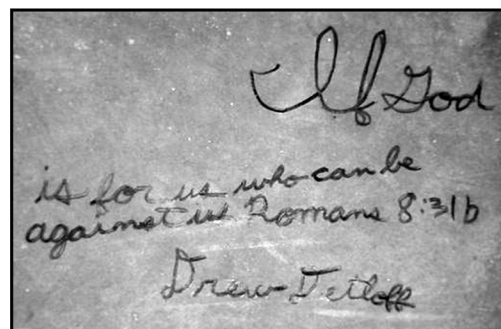 If God
is for us who can be
against us Romans 8:31b
Drew Detloff